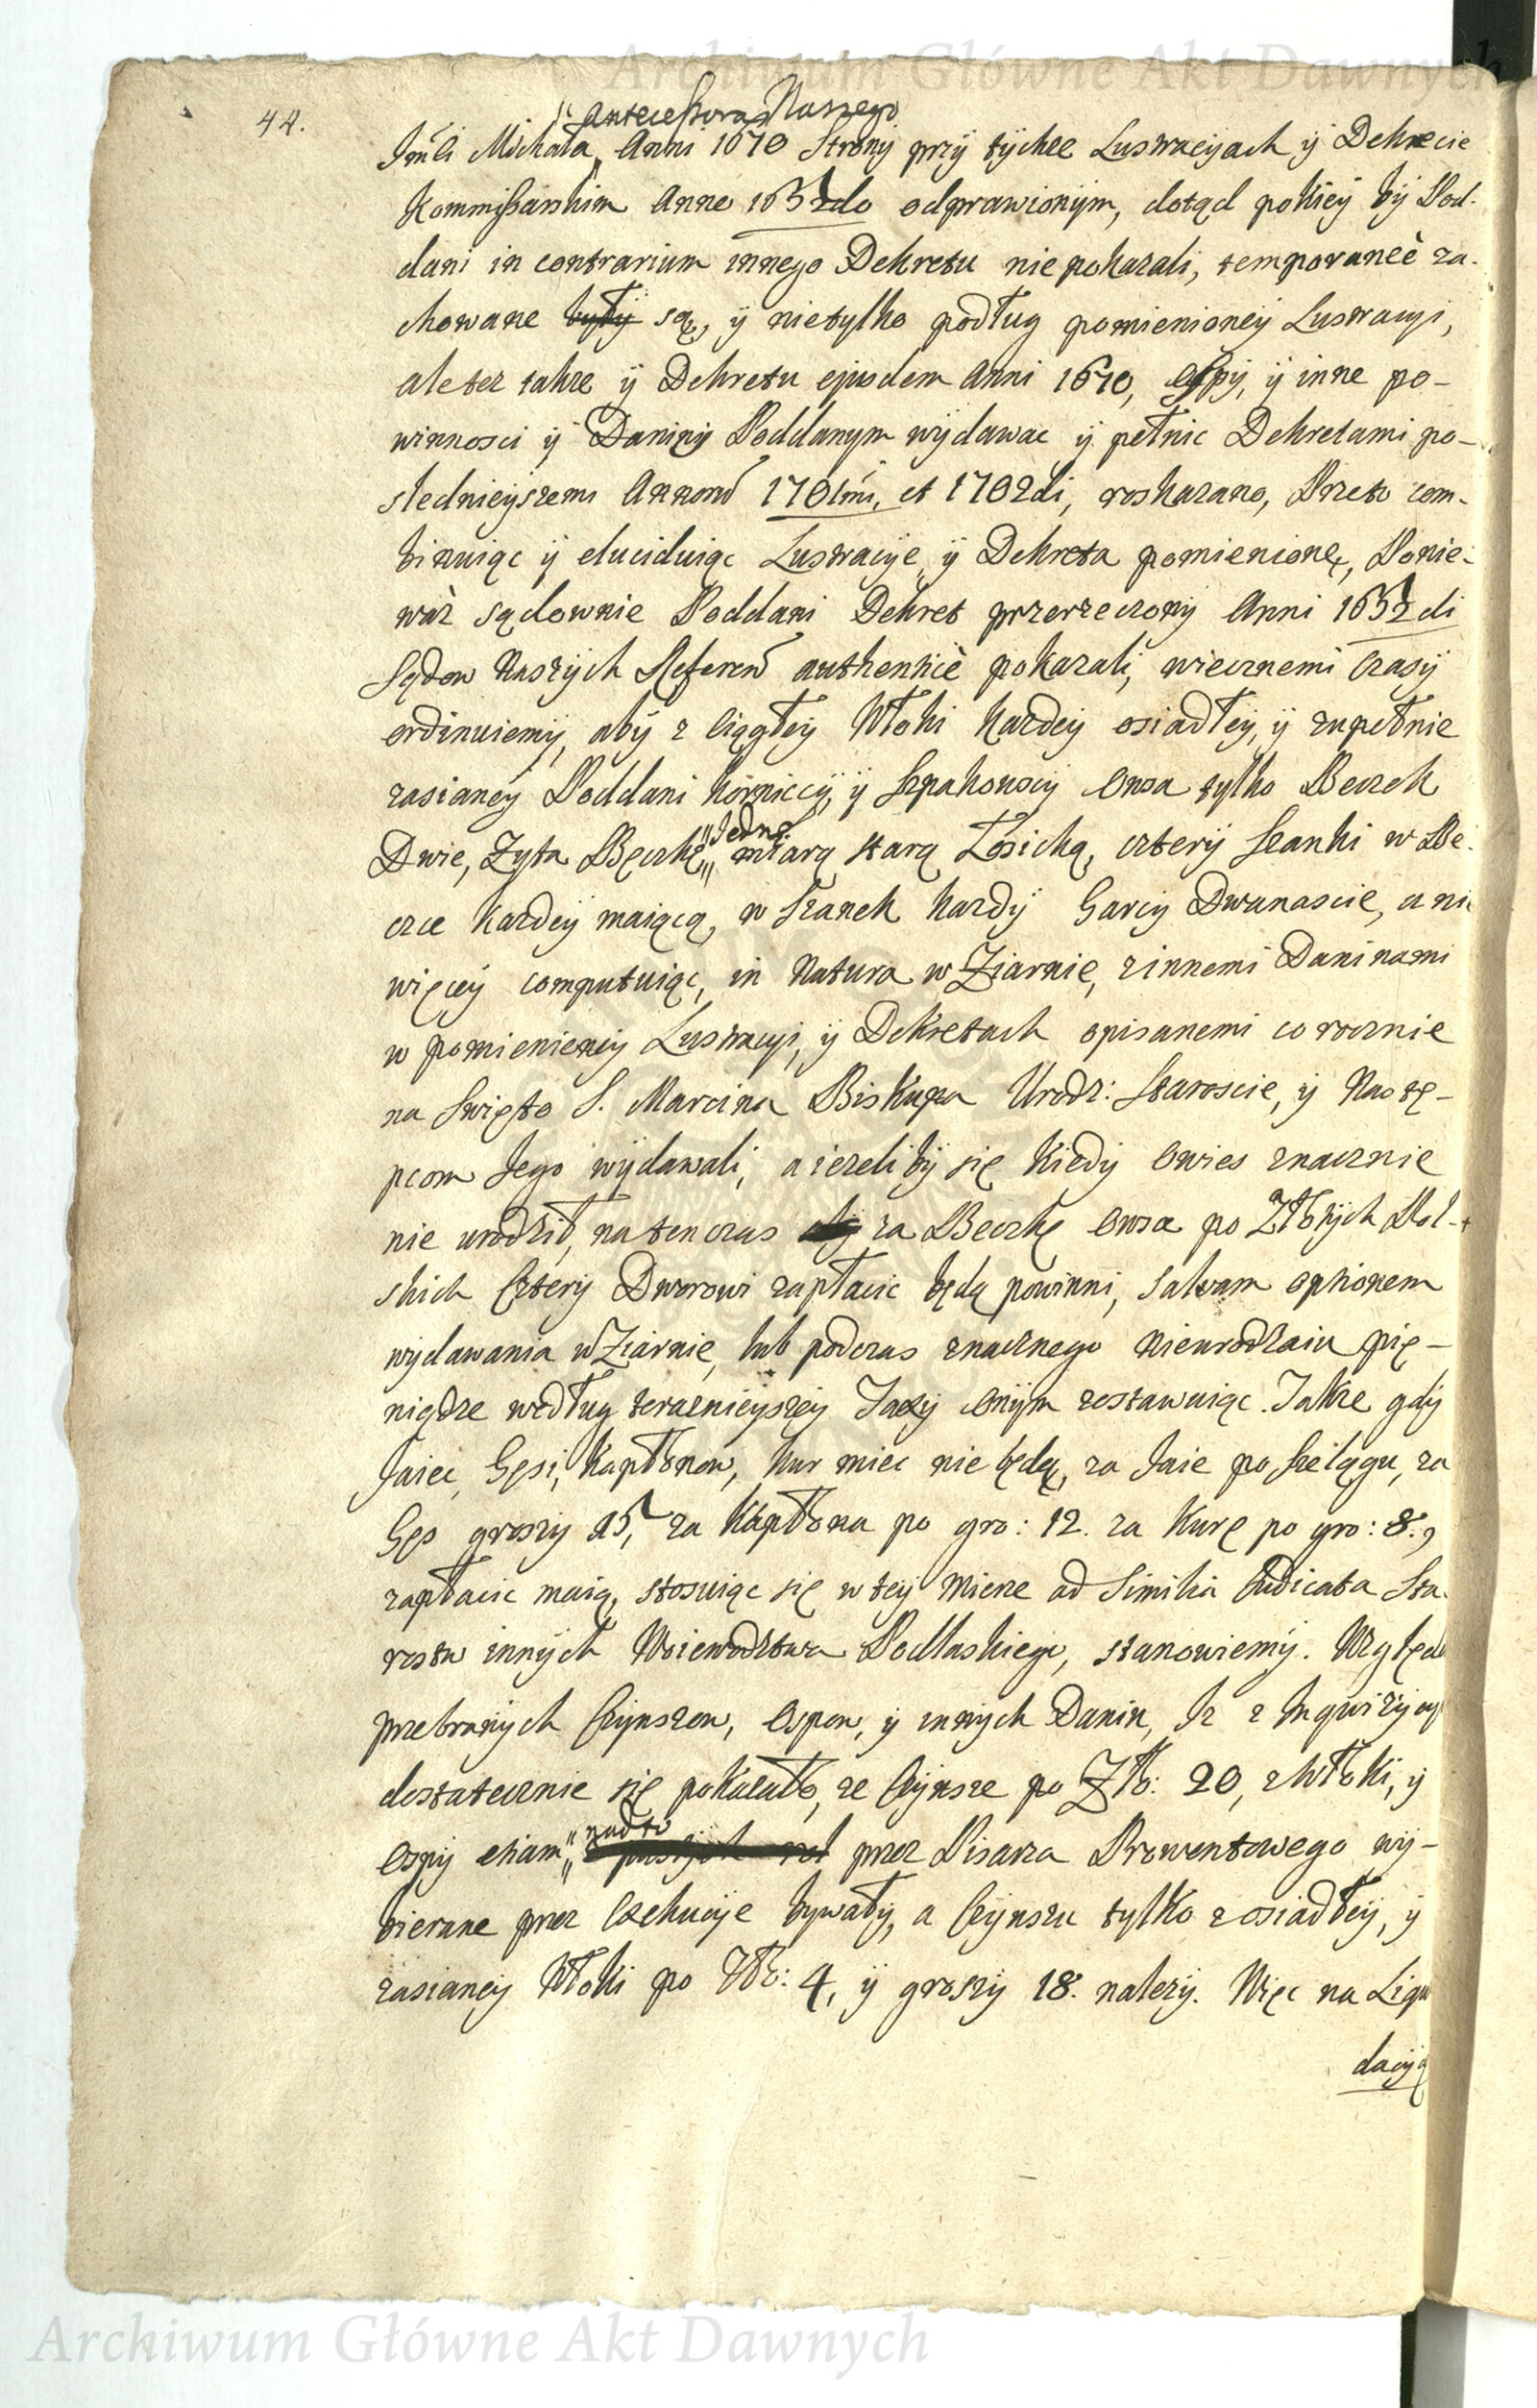 Archiwum Główne Akt Dawnych
44.
Antecessora Naszego
Jmći Michała, Anni 1670 Strony przÿ tÿchże Lustracÿach ÿ Dekrecie
Kommissarskim Anno 1652do odprawionÿm, dotąd pokiеÿ bÿ Pod-
dani in contrarium innego Dekretu nie pokazali, temporaneè za-
chowane bÿłÿ są, ÿ nietylko podług pomienioneÿ Lustracyi,
ale też także ÿ Dekretu ejusdem Anni 1670, Ospÿ, ÿ inne po-
winnosci ÿ Daninÿ Poddanym wÿdawac ÿ pełnic Dekretami po-
slednieÿszemi Annorũ 1701mi, et 1702di, roskazano, Przeto com-
binuiąc ÿ eluciduiąc Lustracÿe, ÿ Dekreta pomienionę, Ponie-
waż sądownie Poddani Dekret przerzeczonÿ Anni 1652di
Sądow Naszÿch Referen̄ authenticè pokazali, wiecznemi Czasÿ
ordinuiemÿ, abÿ z Ciągłeÿ Włoki każdeÿ osiadłeÿ, ÿ zupełnie
zasianeÿ Poddani Korniccÿ, ÿ Szpakowscÿ Owsa tylko Beczek
Dwie, Zyta Bęczkę Jednę miarą starą Łosicką, czterÿ Szanki w Be-
czce Każdeÿ maiącą, w Szanek każdÿ Garcÿ Dwanascie, a ni
więceÿ computuiąc, in Natura w Ziarnie, zinnemi Daninami
w pomienioneÿ Lustracyi, ÿ Dekretach opisanemi co rocznie
na Swięto S. Marcina Biskupa Urodz: Staroscie, ÿ Nastę-
pcom Jego wÿdawali, a ieżelibÿ się kiedÿ Owies znacznie
nie urodził, na ten czas za Beczkę Owsa po Złotÿch Pol-
skich Czterÿ Dworowi zapłacic będą powinni, salvam optionem
wÿdawania w Ziarnie, lub podczas znacznego nieurodzaiu pię-
niądze według terazniеÿszеÿ Taxÿ onÿm zostawuiąc. Także gdÿ
Jaiec, Gęsi, Kapłonow, Kur miec nie będą, za Jaie po szelągu, za
Gęs groszÿ 15, za Kapłona po gro: 12. za Kurę po gro: 8.,
zapłacic maią, stosuiąc się w teÿ mierze ad Similia Iudicata Sta-
rostw innÿch Woiewodztwa Podlaskiego, stanowiemÿ. Względ
przebranÿch Czÿnszow, Ospow, ÿ innÿch Danin, Iż z Inqwizÿcÿ
dostatecznie się pokazało, że Czÿnsze po Zło: 20, z Włoki, ÿ
Ospÿ etiam nadto z pustÿch rol przez Pisarza Prowentowego wÿ-
bierane przez Exekucÿe bÿwałÿ, a Czÿnszu tylko z osiadłeÿ, ÿ
zasianeÿ Włoki po Zło: 4, ÿ groszÿ 18. należÿ. Więc na Liqu
dacÿą
Archiwum Główne Akt Dawnych